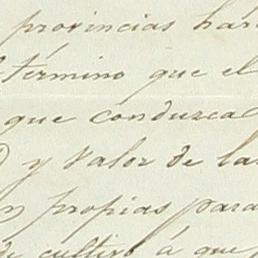 provincias hará
término que el
que conduzcal
y valor de las
propias para
de cultivo á que